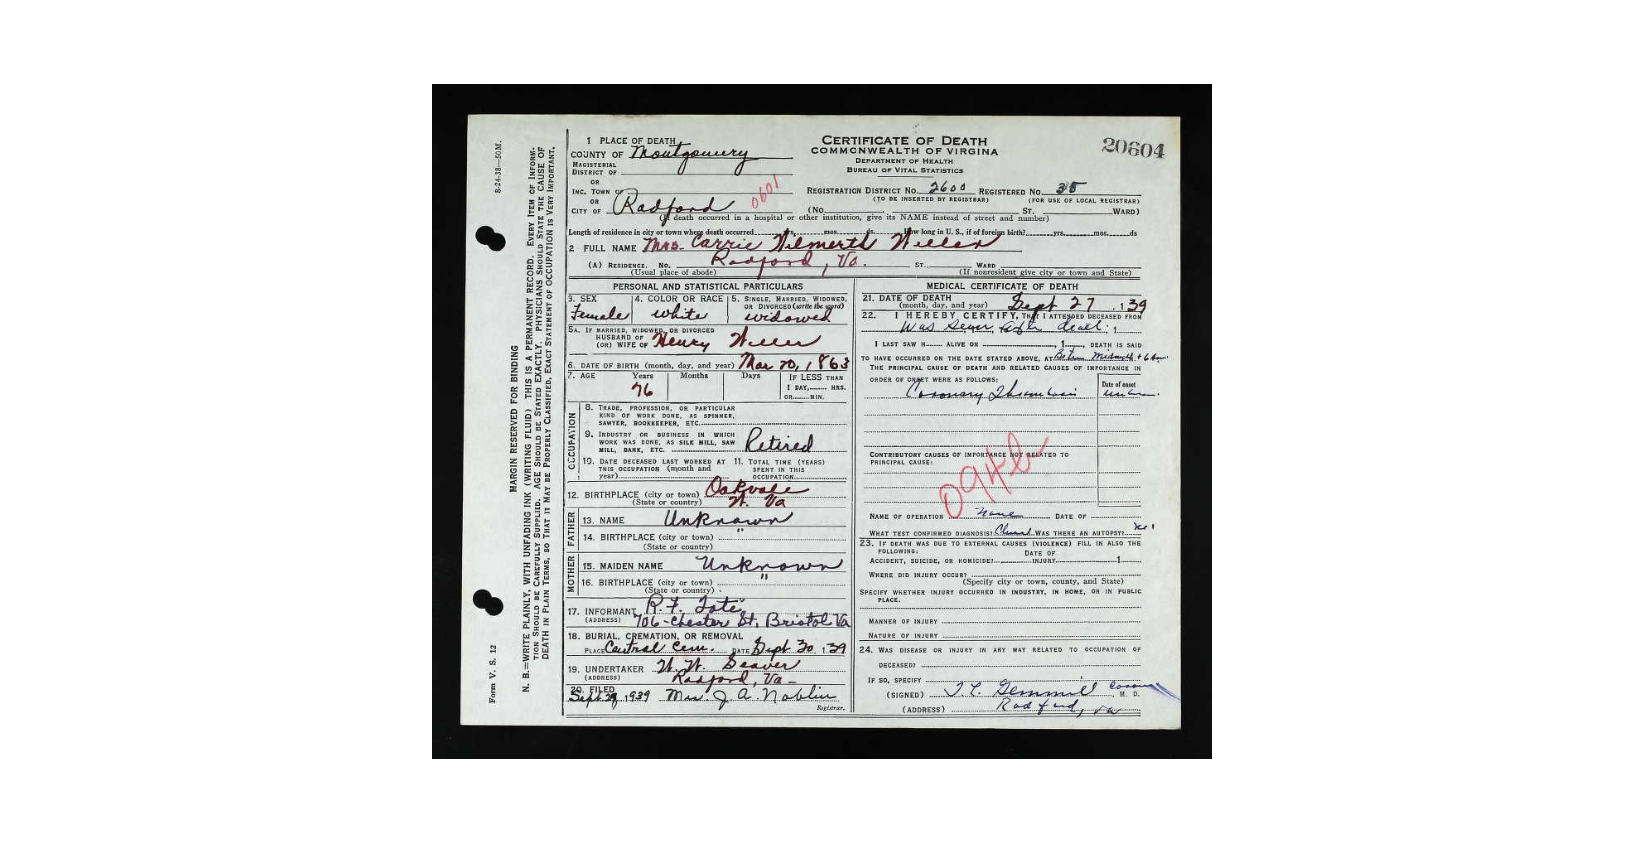 1 PLACE OF DEATH
COUNTY OF Montgomery
MAGISTERIAL
DISTRICT OF
OR
INC. TOWN OF
OR
CITY OF Radford
0601
CERTIFICATE OF DEATH
COMMONWEALTH OF VIRGINIA
DEPARTMENT OF HEALTH
BUREAU OF VITAL STATISTICS
20604
REGISTRATION DISTRICT NO. 2600 REGISTERED NO. 35
(TO BE INSERTED BY REGISTRAR) (FOR USE OF LOCAL REGISTRAR)
(No. ST. WARD)
(If death occurred in a hospital or other institution, give its NAME instead of street and number)
Length of residence in city or town where death occurred yrs. mos. ds. How long in U. S., if of foreign birth? yrs. mos. ds
2 FULL NAME Mrs. Carrie Wilmerth
(A) RESIDENCE. No. Radford, Va. ST. WARD
(Usual place of abode) (If nonresident give city or town and State)
PERSONAL AND STATISTICAL PARTICULARS
3. SEX 4. COLOR OR RACE 5. SINGLE, MARRIED, WIDOWED,
OR DIVORCED (write the word)
Female white widowed
5A. IF MARRIED, WIDOWED, OR DIVORCED
HUSBAND OF
(OR) WIFE OF Henry
6. DATE OF BIRTH (month, day, and year) Mar 20, 1863
7. AGE Years Months Days IF LESS THAN
1 DAY, HRS.
OR MIN.
76
OCCUPATION
8. TRADE, PROFESSION, OR PARTICULAR
KIND OF WORK DONE, AS SPINNER,
SAWYER, BOOKKEEPER, ETC.
9. INDUSTRY OR BUSINESS IN WHICH
WORK WAS DONE, AS SILK MILL, SAW
MILL, BANK, ETC. Retired
10. DATE DECEASED LAST WORKED AT 11. TOTAL TIME (YEARS)
THIS OCCUPATION (month and SPENT IN THIS
year) OCCUPATION
12. BIRTHPLACE (city or town) Oakvale
(State or country) W. Va
FATHER
13. NAME Unknown
14. BIRTHPLACE (city or town) "
(State or country)
MOTHER
15. MAIDEN NAME Unknown
16. BIRTHPLACE (city or town) "
(State or country)
17. INFORMANT R. F.
(ADDRESS) 706 - Chester St, Bristol Va
18. BURIAL, CREMATION, OR REMOVAL
PLACE Central Cem. DATE Sept 30, 1 39
19. UNDERTAKER W. W. Seaver
(ADDRESS) Radford, Va -
20. FILED
Sept 29, 1939 Mrs. J. A. Noblin
Registrar.
MEDICAL CERTIFICATE OF DEATH
21. DATE OF DEATH
(month, day, and year) Sept 27, 1 39
22. I HEREBY CERTIFY, THAT I ATTENDED DECEASED FROM
Was seen after death, 1
I LAST SAW H ALIVE ON , 1 , DEATH IS SAID
TO HAVE OCCURRED ON THE DATE STATED ABOVE, AT
THE PRINCIPAL CAUSE OF DEATH AND RELATED CAUSES OF IMPORTANCE IN
ORDER OF ONSET WERE AS FOLLOWS: Date of onset
Coronary Thrombosis
0946
CONTRIBUTORY CAUSES OF IMPORTANCE NOT RELATED TO
PRINCIPAL CAUSE:
NAME OF OPERATION None DATE OF
WHAT TEST CONFIRMED DIAGNOSIS? WAS THERE AN AUTOPSY?
23. IF DEATH WAS DUE TO EXTERNAL CAUSES (VIOLENCE) FILL IN ALSO THE
FOLLOWING: DATE OF
ACCIDENT, SUICIDE, OR HOMICIDE? INJURY 1
WHERE DID INJURY OCCUR?
(Specify city or town, county, and State)
SPECIFY WHETHER INJURY OCCURRED IN INDUSTRY, IN HOME, OR IN PUBLIC
PLACE.
MANNER OF INJURY
NATURE OF INJURY
24. WAS DISEASE OR INJURY IN ANY WAY RELATED TO OCCUPATION OF
DECEASED?
IF SO, SPECIFY
(SIGNED) Gemmill Coroner, M. D.
(ADDRESS) Radford, Va
8-24-38—50M.
MARGIN RESERVED FOR BINDING
N. B.—WRITE PLAINLY, WITH UNFADING INK (WRITING FLUID) THIS IS A PERMANENT RECORD. EVERY ITEM OF INFORM-
TION SHOULD BE CAREFULLY SUPPLIED. AGE SHOULD BE STATED EXACTLY. PHYSICIANS SHOULD STATE THE CAUSE OF
DEATH IN PLAIN TERMS, SO THAT IT MAY BE PROPERLY CLASSIFIED. EXACT STATEMENT OF OCCUPATION IS VERY IMPORTANT.
Form V. S. 12